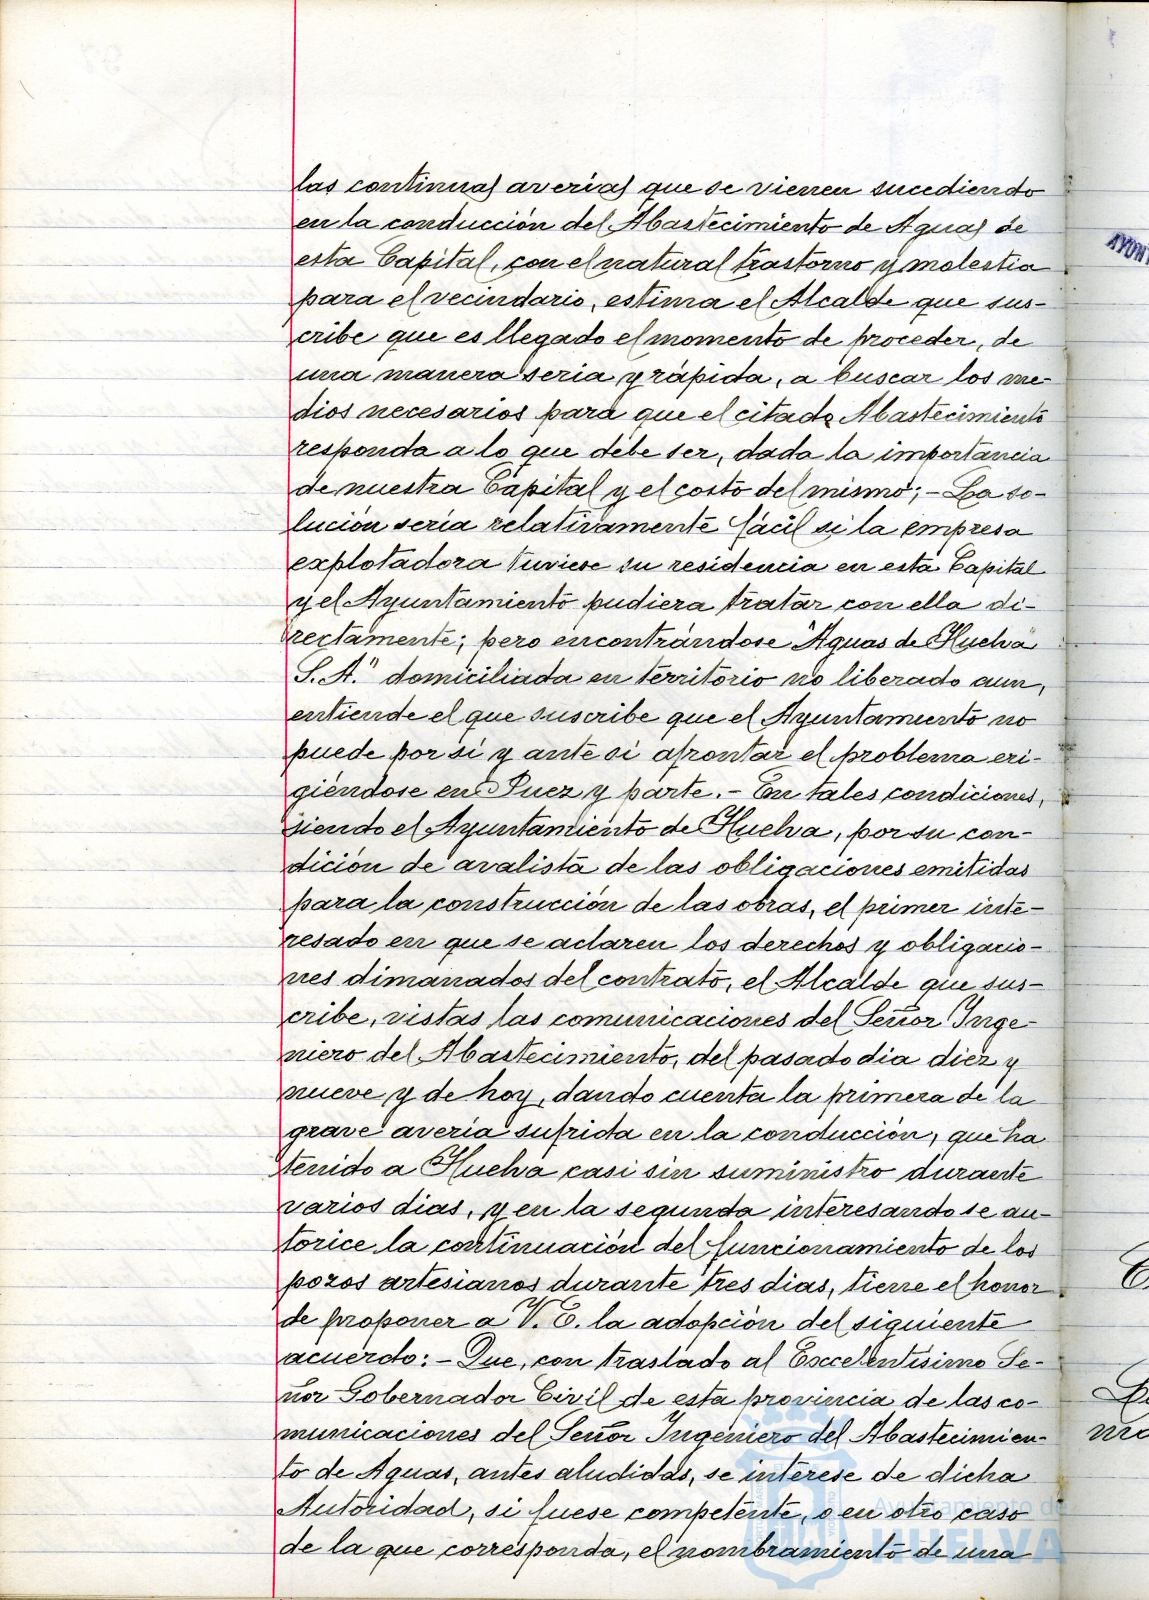 las continuas averias que se vienen sucediendo
en la conducción del Abastecimiento de Aguas de
esta Capital, con el natural trastorno y molestia
para el vecindario, estima el Alcalde que sus-
cribe que es llegado el momento de proceder, de
una manera seria y rápida, a buscar los me-
dios necesarios para que el citado Abastecimiento
responda a lo que debe ser, dada la importancia
de nuestra Capital y el costo del mismo; - La so-
lución seria relativamente fácil si la empresa
explotadora tuviese su residencia en esta Capital
y el Ayuntamiento pudiera tratar con ella di-
rectamente; pero encontrándose "Aguas de Huelva
S. A." domiciliada en territorio no liberado aun,
entiende el que suscribe que el Ayuntamiento no
puede por si y ante si afrontar el problema eri-
giéndose en Juez y parte. - En tales condiciones,
siendo el Ayuntamiento de Huelva, por su con-
dición de avalista de las obligaciones emitidas
para la construcción de las obras, el primer inte-
resado en que se aclaren los derechos y obligacio-
nes dimanados del contrato, el Alcalde que sus-
cribe, vistas las comunicaciones del Señor Inge-
niero del Abastecimiento, del pasado dia diez y
nueve y de hoy, dando cuenta la primera de la
grave averia sufrida en la conducción, que ha
tenido a Huelva casi sin suministro durante
varios dias, y en la segunda interesando se au-
torice la continuación del funcionamiento de los
pozos artesianos durante tres dias, tiene el honor
de proponer a V. E. la adopción del siguiente
acuerdo: - Que, con traslado al Exccelentisimo Se-
ñor Gobernador Civil de esta provincia de las co-
municaciones del Señor Ingeniero del Abastecimien-
to de Aguas, antes aludidas, se interese de dicha
Autoridad, si fuese competente, o en otro caso
de la que corresponda, el nombramiento de una
Ayuntamiento de
HUELVA